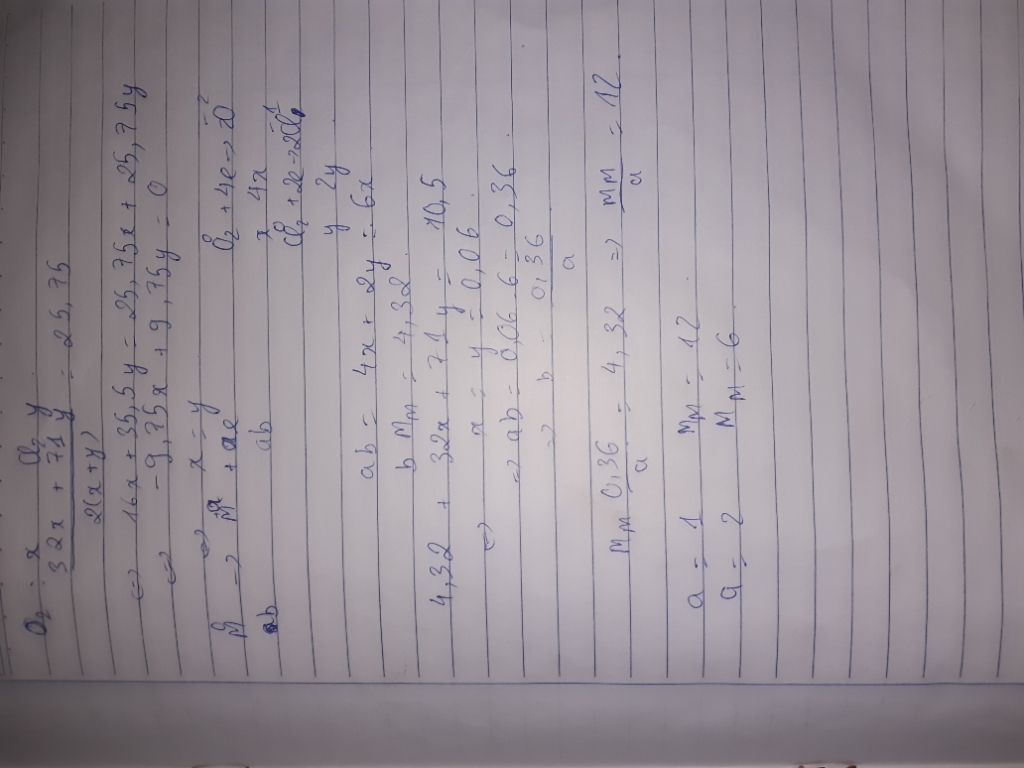 O₂ : x Cl₂ y
32x + 71y / 2(x+y) = 25,75
<=> 16x + 35,5y = 25,75x + 25,75y
<=> -9,75x + 9,75y = 0
<=> x = y
M => Mᵃ + ae O₂ + 4e -> 2O⁻²
ab ab x 4x
Cl₂ + 2e -> 2Cl⁻¹
y 2y
ab = 4x + 2y = 6x
b M_M = 4,32
4,32 + 32x + 71y = 10,5
<=> x = y = 0,06
=> ab = 0,06.6 = 0,36
=> b = 0,36 / a
M_M 0,36 / a = 4,32 => M_M / a = 12
a = 1 M_M = 12
a = 2 M_M = 6